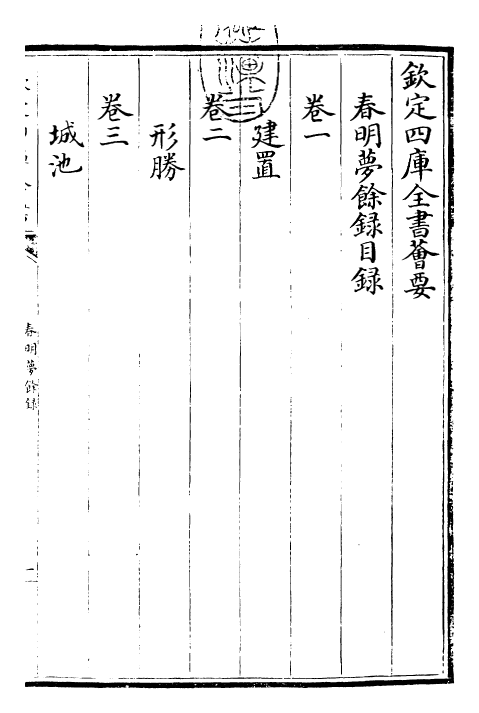 欽定四庫全書薈要
春明夢餘録目録
卷一
建置
卷二
形勝
卷三
城池
春明夢餘録